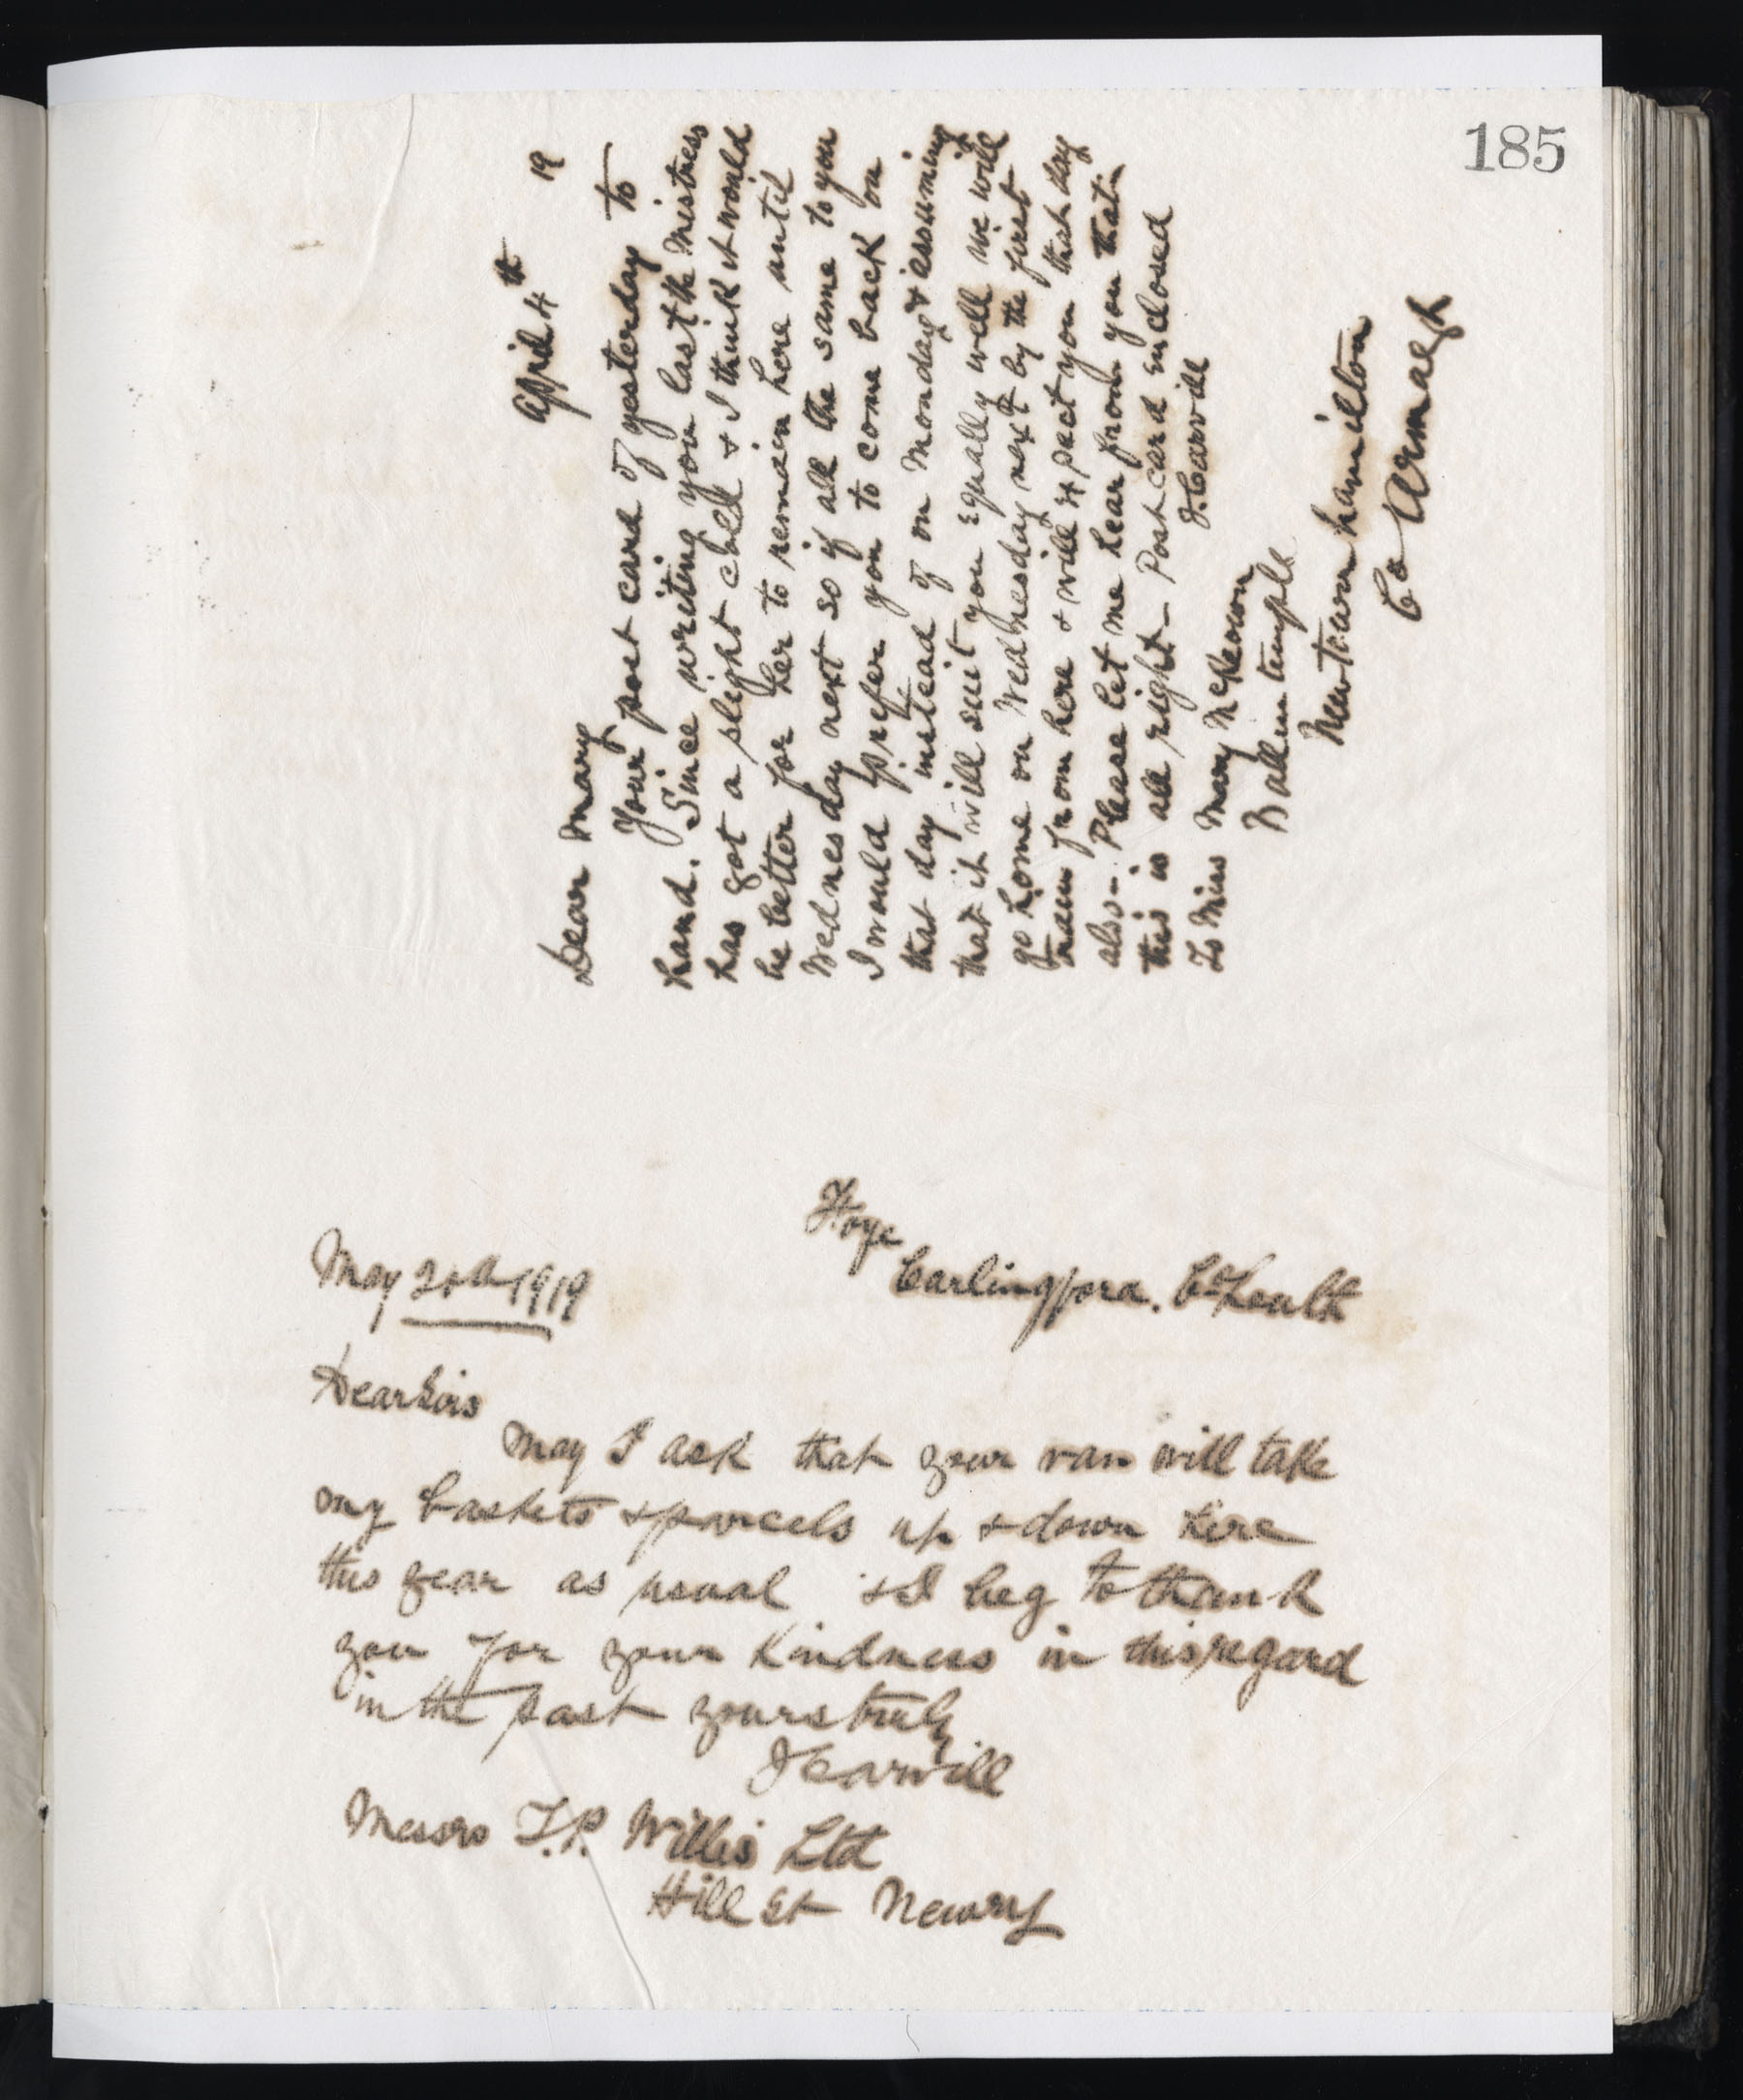 185
April 4th 19
Dear Mary
Your post card of yesterday to
hand. Since writing you last the Mistress
has got a slight cold & I think it would
be better for her to remain here until
Wednesday next so if all the same to you
I would prefer you to come back on
that day instead of on Monday & assuming
that it will suit you equally well we will
go home on Wednesday next by the first
train from here & will expect you that day
also - Please let me hear from you that
this is all right - Post card enclosed
J. Carvill
To Miss Mary McKeown
Ballintemple
Newtownhamilton
Co Armagh
Carlingford. Co Louth
May 20th 1919
Dear Sirs
May I ask that your van will take
my baskets & parcels up & down here
this year as usual & I beg to thank
you for your kindness in this regard
in the past yours truly
J Carvill
Messrs T.P. Willis Ltd
Hill St Newry